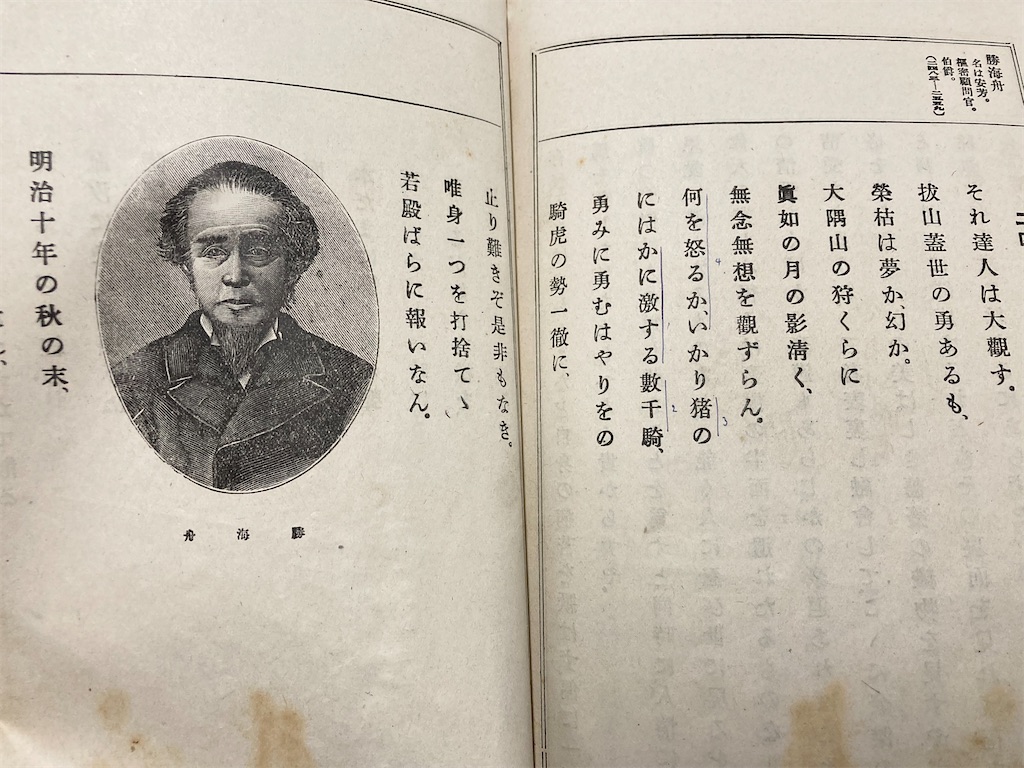 勝海舟
名は安芳。
樞密顧問官。
伯爵。
(二四八三—二五五九)
それ達人は大觀す。
拔山蓋世の勇あるも、
榮枯は夢か、幻か。
大隅山の狩くらに
眞如の月の影淸く、
無念無想を觀ずらん。
何を怒るか、いかり猪の
にはかに激する數千騎、
勇みに勇むはやりをの
騎虎の勢一徹に、
止り難きぞ是非もなき。
唯身一つを打捨てゝ
若殿ばらに報いなん。
勝海舟
明治十年の秋の末、